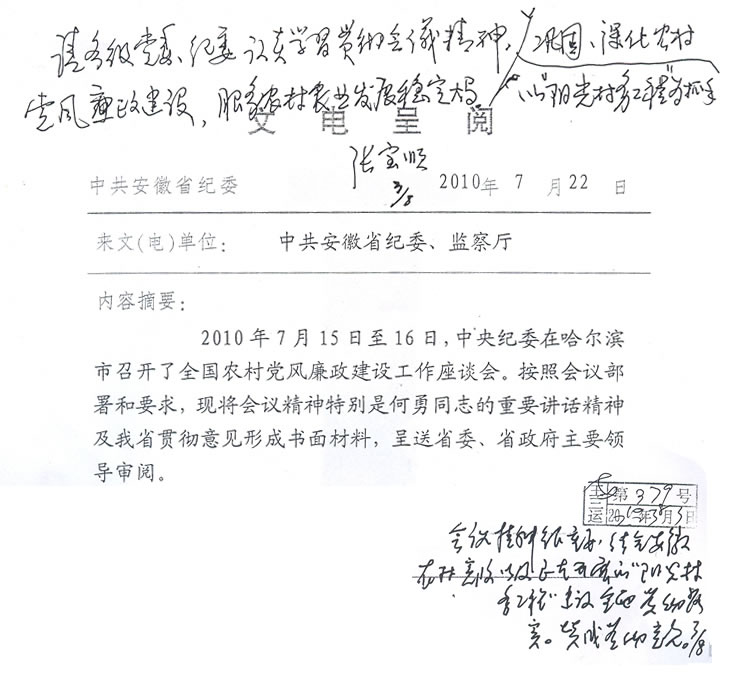 请各级党委、纪委认真学习贯彻会议精神，巩固、深化农村
党风廉政建设，服务农村农业发展稳定大局
以"阳光村务工程"为抓手
文电呈阅
张宝顺
3/8
中共安徽省纪委 2010年 7 月 22 日
来文(电)单位： 中共安徽省纪委、监察厅
内容摘要：
2010年7月15日至16日，中央纪委在哈尔滨
市召开了全国农村党风廉政建设工作座谈会。按照会议部
署和要求，现将会议精神特别是何勇同志的重要讲话精神
及我省贯彻意见形成书面材料，呈送省委、省政府主要领
导审阅。
第379号
会议精神很重要，结合安徽
农村实际以及正在开展的"阳光村
务工程"建设全面贯彻落
实。赞成贯彻意见。3/8